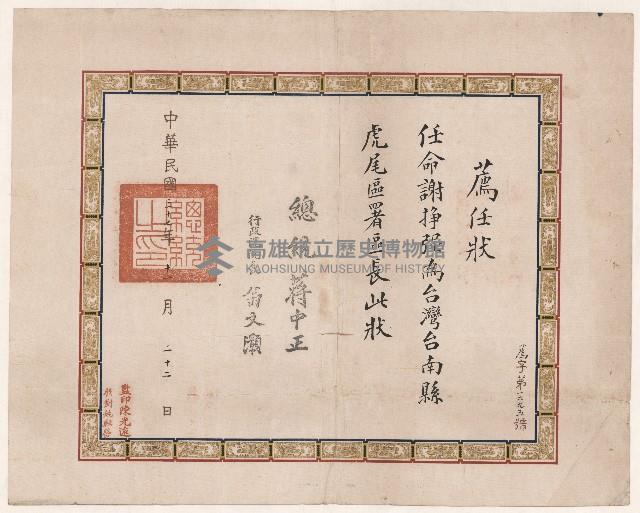 薦任狀
任命謝掙强為台灣台南縣
虎尾區署區長此狀
總統蔣中正
行政院院長翁文灝
中華民國三十七年十月二十二日
薦字第號
監印陳光遠
校對
總統之印
高雄市立歷史博物館
KAOHSIUNG MUSEUM OF HISTORY